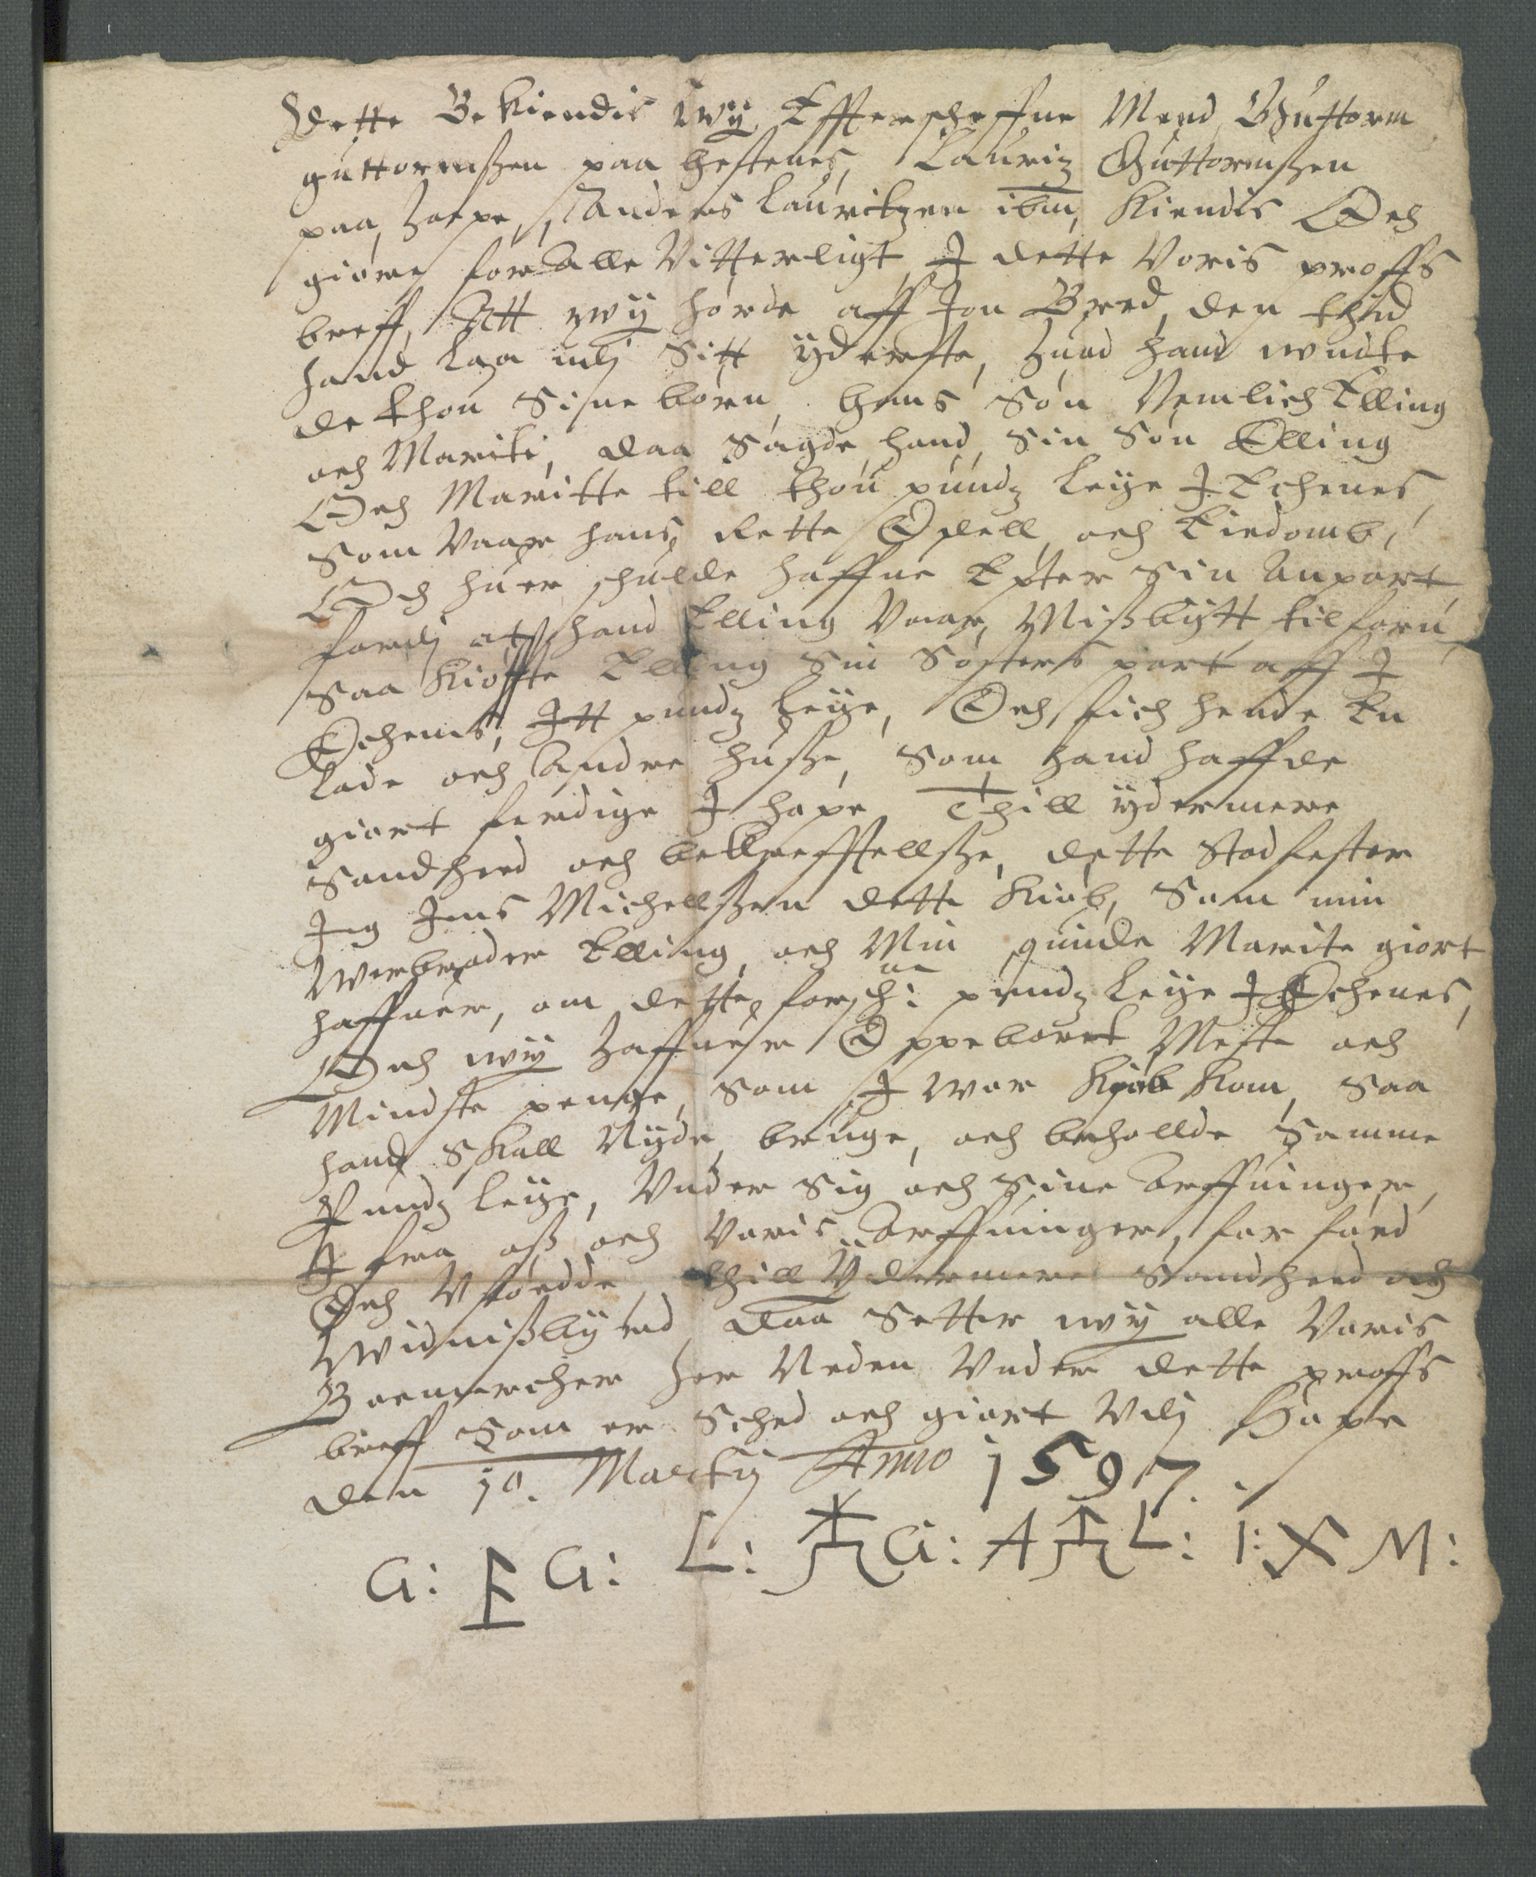 Dette Bekiendis wÿ Effterschreffne Mend, Guttorm
guttormßen paa hestenes, Lauritz Guttormßen
paa hape, Anders Lauritzen ibm, Kiendis Och
giøre for alle Vitterligt, J dette Voris proffs
breff, Att wÿ hørde aff Jon Bred, den thid
hand laa udj Sitt ÿderste, huad hand wndte
de thou Sine børn, hans Søn Nemlich Elling
och Mariti, daa Sagde hand, Sin Søn Elling
Och Maritte till thou pundz leÿe J Echenes,
Som Vaare hans Rette Odell, och Eiedomb,
Och huer schulde haffue Epter Sin Anpart,
fordj att hand Elling Vaar, Mißbÿtt tilforn,
Saa kiøffte Elling Sin Søsters part aff J
Echenes, Jtt pundz leÿe, Och fich hende En
lade och Andre huße, Som hand haffde
giort ferdige J hape Thill ÿdermere
Sandhed och bekrefftellße, dette Stadfester
Jeg Jens Michellßen dette kiøb, Som min
Werbroder Elling, och Min quinde Marite giort
haffuer, om dette forsch: pundz leÿe J Echenes,
Och wÿ haffuer Oppeboret Meste och
Mindste penge, Som J wor Kiøb kom, Saa
hand Skall Nÿde, bruge, och beholde Samme
Pundz leÿe, Vnder Sig och Sine Arffuinger,
J fra oß och Voris Arffuinger, for fød
Och Vfødde, thill Ydermere Sandhed och
Widnißbÿrd, daa Setter wÿ alle Voris
Boemercher her Neden Vnder dette proffs
breff Som er Sched och giort Vdj Hape
den 10. Martij Anno 1597.
G: G: L: G: A L: I: M: